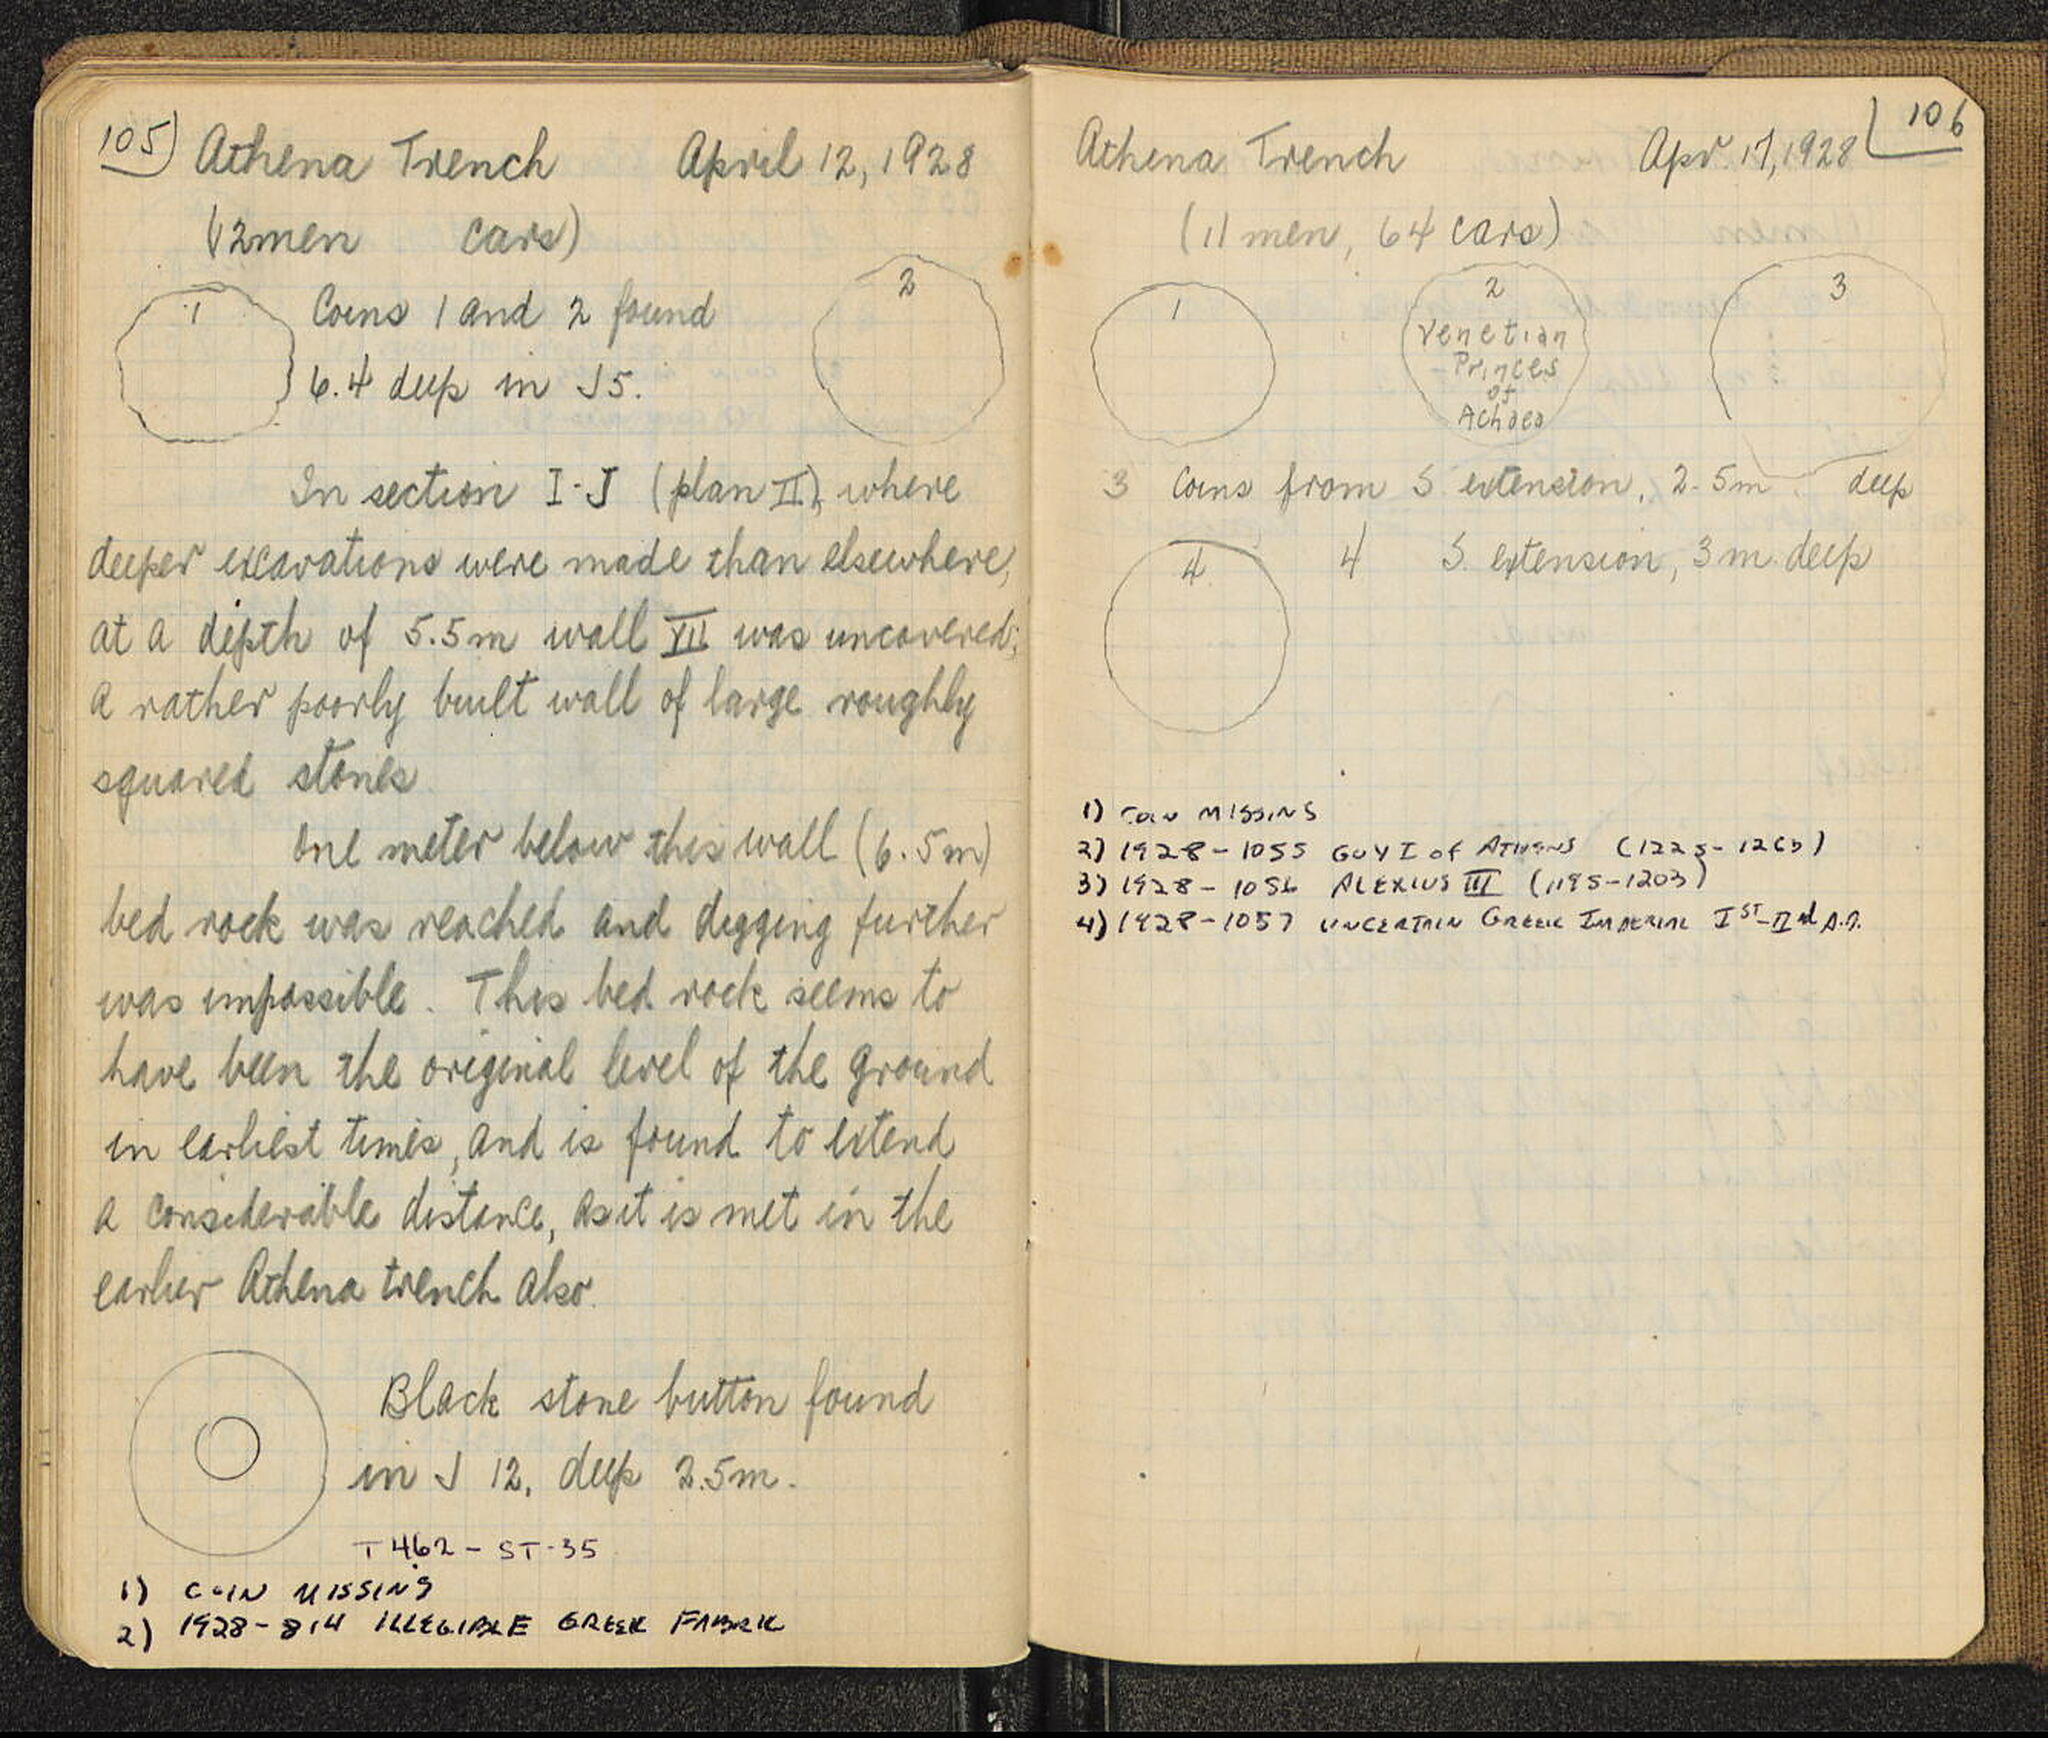 105) Athena Trench April 12, 1928
(12 men cars)
1
Coins 1 and 2 found
6.4 deep in J5.
2
In section I-J (plan II), where
deeper excavations were made than elsewhere,
at a depth of 5.5m wall VII was uncovered;
a rather poorly built wall of large roughly
squared stones.
One meter below this wall (6.5m)
bed rock was reached and digging further
was impossible. This bed rock seems to
have been the original level of the ground
in earliest times, and is found to extend
a considerable distance, as it is met in the
earlier Athena trench also.
Black stone button found
in J 12, deep 2.5m.
T 462 - ST-35
1) COIN MISSING
2) 1928-814 ILLEGIBLE GREEK FABRIC
106
Athena Trench Apr. 17, 1928
(11 men, 64 cars)
1
2
Venetian
Princes
of
Achaea
3
3 Coins from S. extension, 2.5m. deep
4
4 S. extension, 3 m. deep
1) COIN MISSING
2) 1928-1055 GUY I OF ATHENS (1225-1263)
3) 1928-1056 ALEXIUS III (1195-1203)
4) 1928-1057 UNCERTAIN GREEK IMPERIAL Ist-IInd A.D.